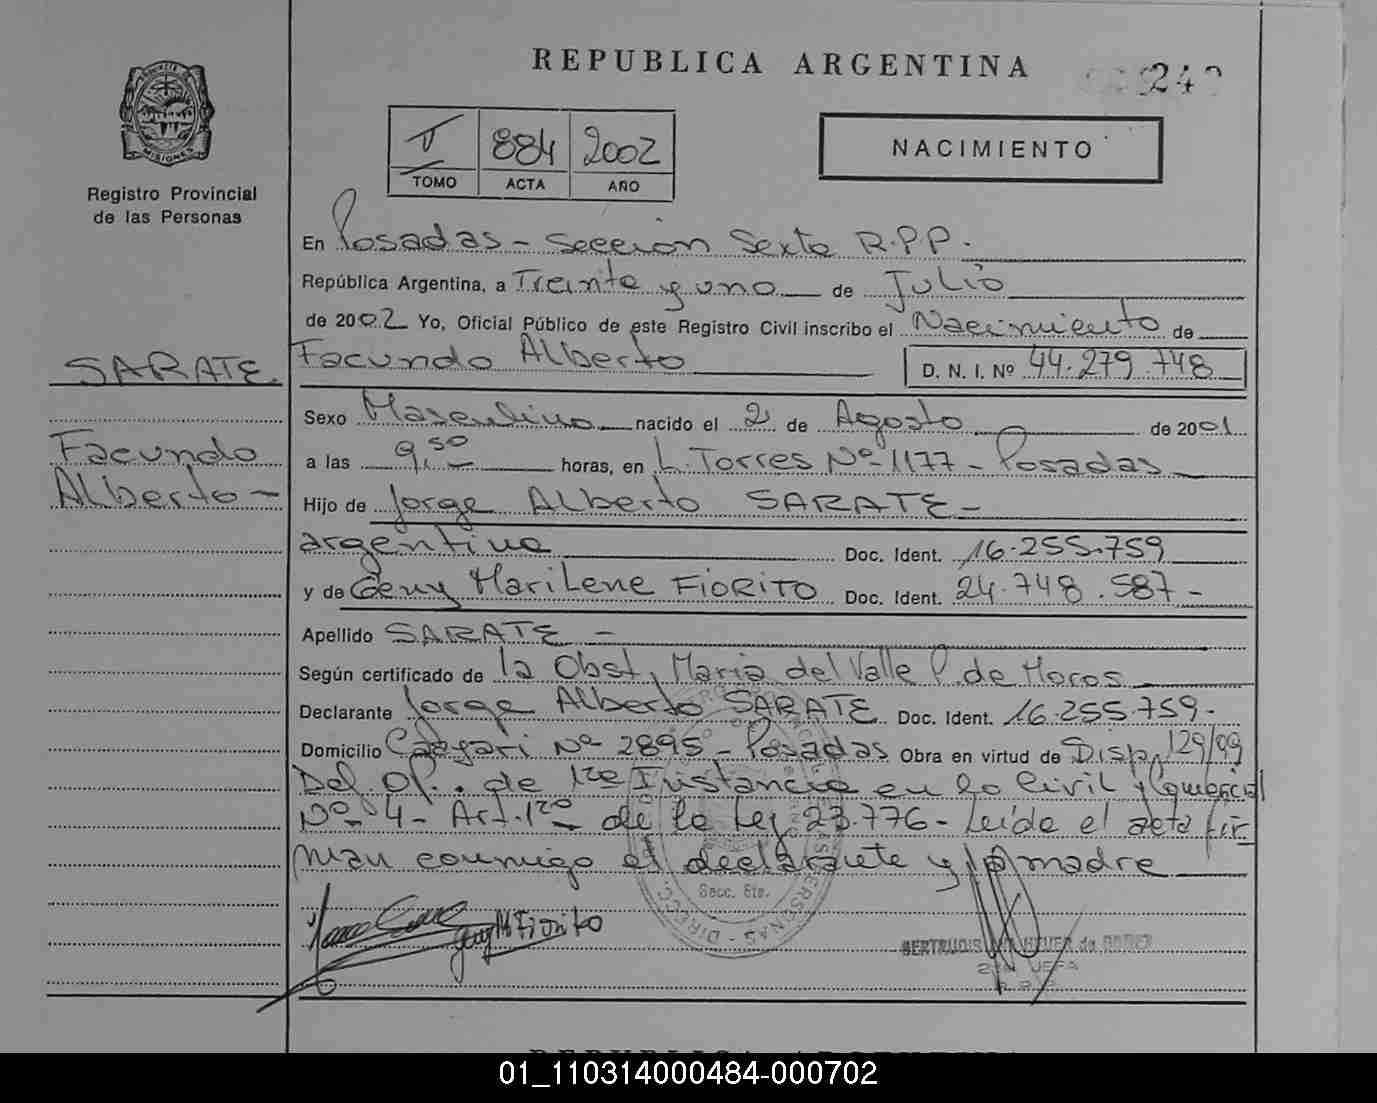 REPUBLICA ARGENTINA
PROVINCIA DE
MISIONES
Registro Provincial
de las Personas
T 884 2002
TOMO ACTA AÑO
NACIMIENTO
En Posadas - Sección Sexta R.P.P.
República Argentina, a Treinta y uno de Julio
de 2002 Yo, Oficial Público de este Registro Civil inscribo el Nacimiento de
SARATE
Facundo Alberto D. N. I. Nº 44.279.748
Sexo Masculino nacido el 2 de Agosto de 2001
Facundo
a las 9,50 horas, en L. Torres Nº 1177 - Posadas
Alberto -
Hijo de Jorge Alberto SARATE -
argentino Doc. Ident. 16.255.759
y de Geny Marilene FIORITO Doc. Ident. 24.748.587 -
Apellido SARATE -
Según certificado de la Obst. Maria del Valle P. de Moros
Declarante Jorge Alberto SARATE Doc. Ident. 16.255.759 -
Domicilio Nº 2895 - Posadas Obra en virtud de Disp. 129/99
Del Of. de 1ra Instancia en lo Civil y Comercial
Nº 4 - Art. 1ro de la Ley 23.776 - Leída el acta fir
man conmigo el declarante y la madre
Secc. 6ta.
Geny M Fiorito
01_110314000484-000702